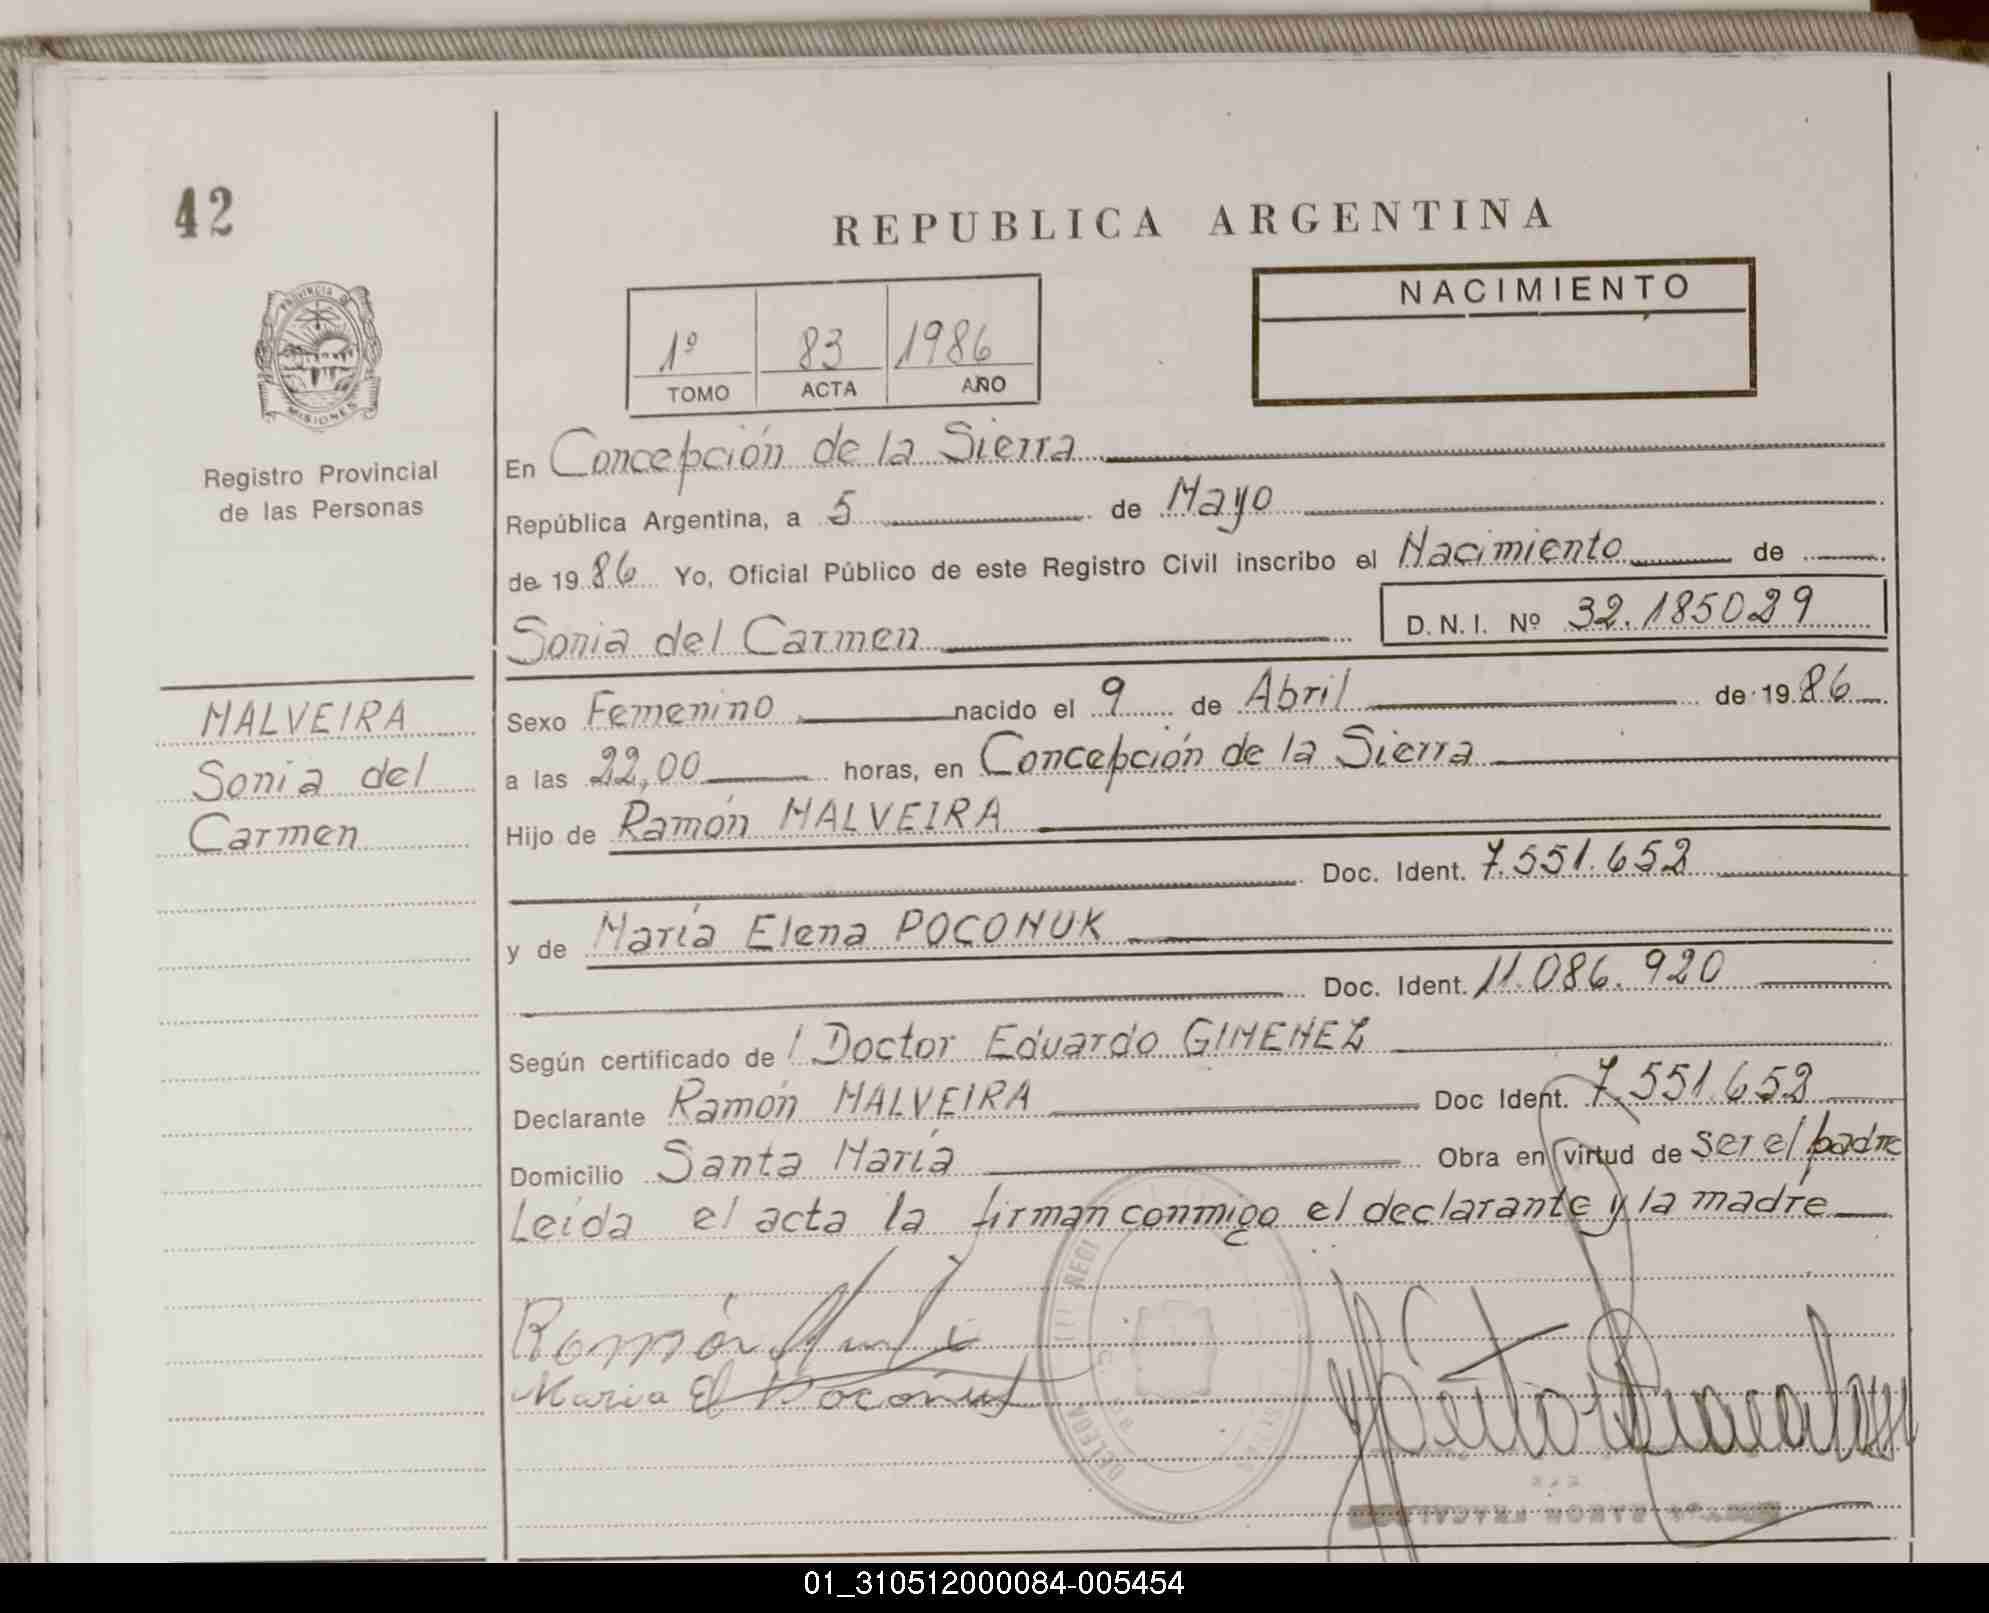 42
REPUBLICA ARGENTINA
NACIMIENTO
1º 83 1986
TOMO ACTA AÑO
PROVINCIA DE
MISIONES
Registro Provincial
de las Personas
En Concepción de la Sierra
República Argentina, a 5 de Mayo
de 19 86 Yo, Oficial Público de este Registro Civil inscribo el Nacimiento de
Sonia del Carmen D.N.I. Nº 32.185029
MALVEIRA
Sonia del
Carmen
Sexo Femenino nacido el 9 de Abril de 19 86
a las 22,00 horas, en Concepción de la Sierra
Hijo de Ramón MALVEIRA
Doc. Ident. 7.551.652
y de María Elena POCONUK
Doc. Ident. 11.086.920
Según certificado de / Doctor Eduardo GIMENEZ
Declarante Ramón MALVEIRA Doc Ident. 7.551.652
Domicilio Santa María Obra en virtud de ser el padre
Leída el acta la firman conmigo el declarante y la madre
Ramón
Maria El
01_310512000084-005454